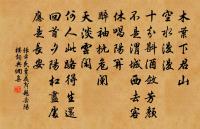 木葉下君山
空水漫漫
十分斟酒斂芳顏
不是渭城西去客
休唱陽關
醉袖撫危闌
天淡雲閑
何人此路得生還
回首夕陽紅盡處
應是長安